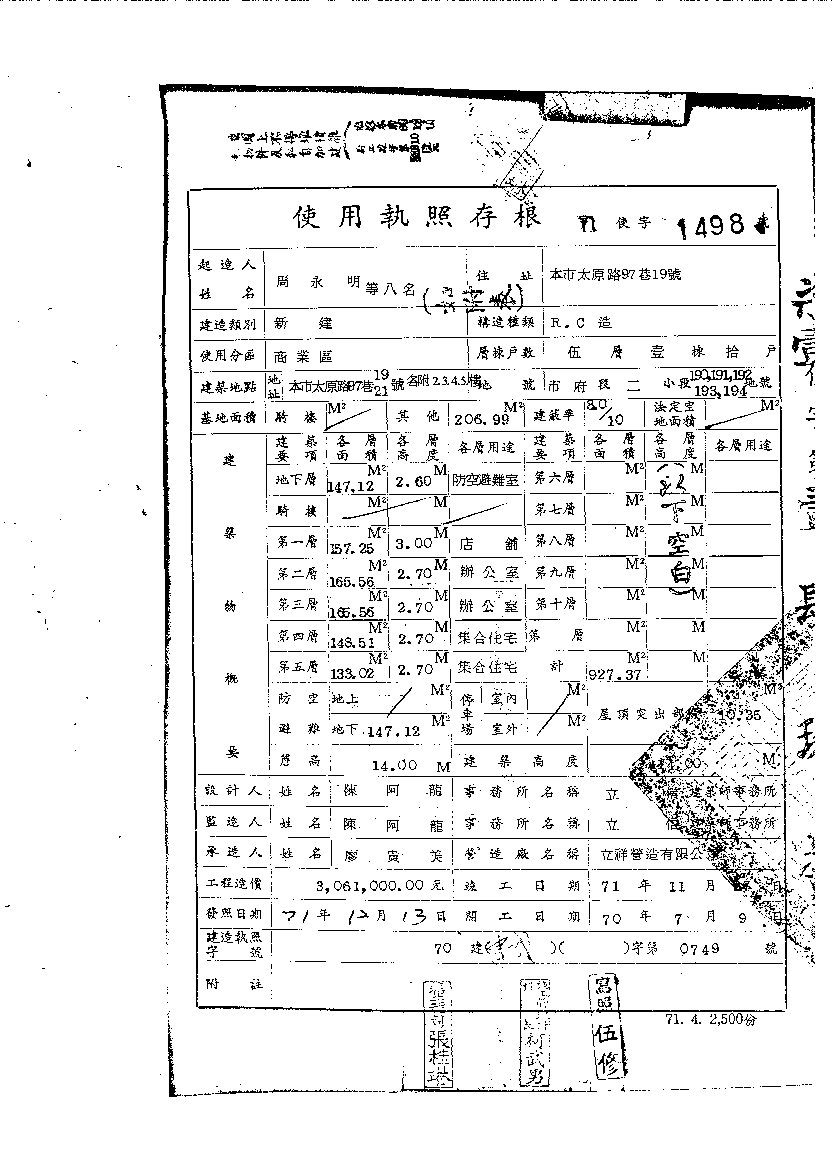 使用執照存根 71 使字 1498 號
起造人姓名 周永明等八名 住址 本市太原路97巷19號
建造類別 新建 構造種類 R.C造
使用分區 商業區 層棟戶數 伍層壹棟拾戶
建築地點 地址 本市太原路97巷19 21號各附2.3.4.5.樓 地號 市府段二小段190,191,192 193,194地號
基地面積 騎樓 M² 其他 206.99 M² 建蔽率 80/10 法定空地面積 M²
建築物概要
建築要項 各層面積 各層高度 各層用途 建築要項 各層面積 各層高度 各層用途
地下層 147.12 M² 2.60 M 防空避難室 第六層 M² M
騎樓 M² M 第七層 M² M
(以下空白)
第一層 157.25 M² 3.00 M 店舖 第八層 M² M
第二層 165.56 M² 2.70 M 辦公室 第九層 M² M
第三層 165.56 M² 2.70 辦公室 第十層 M² M
第四層 148.51 M² 2.70 集合住宅 第層 M² M
第五層 133.02 M² 2.70 集合住宅 計 927.37 M² M
防空避難 地上 M² 停車場 室內 M² 屋頂突出部 10.35 M²
地下 147.12 M² 室外 M²
簷高 14.00 M 建築高度 M
設計人 姓名 陳阿龍 事務所名稱 立 建築師事務所
監造人 姓名 陳阿龍 事務所名稱 立 師事務所
承造人 姓名 廖寅美 營造廠名稱 立祥營造有限公
工程造價 3,061,000.00元 竣工日期 71年11月 日
發照日期 71年12月13日 開工日期 70年7月9日
建造執照字號 70 建( )( )字第 0749 號
附註
71. 4. 2,500份
張桂琳
柯武男
寫照伍修